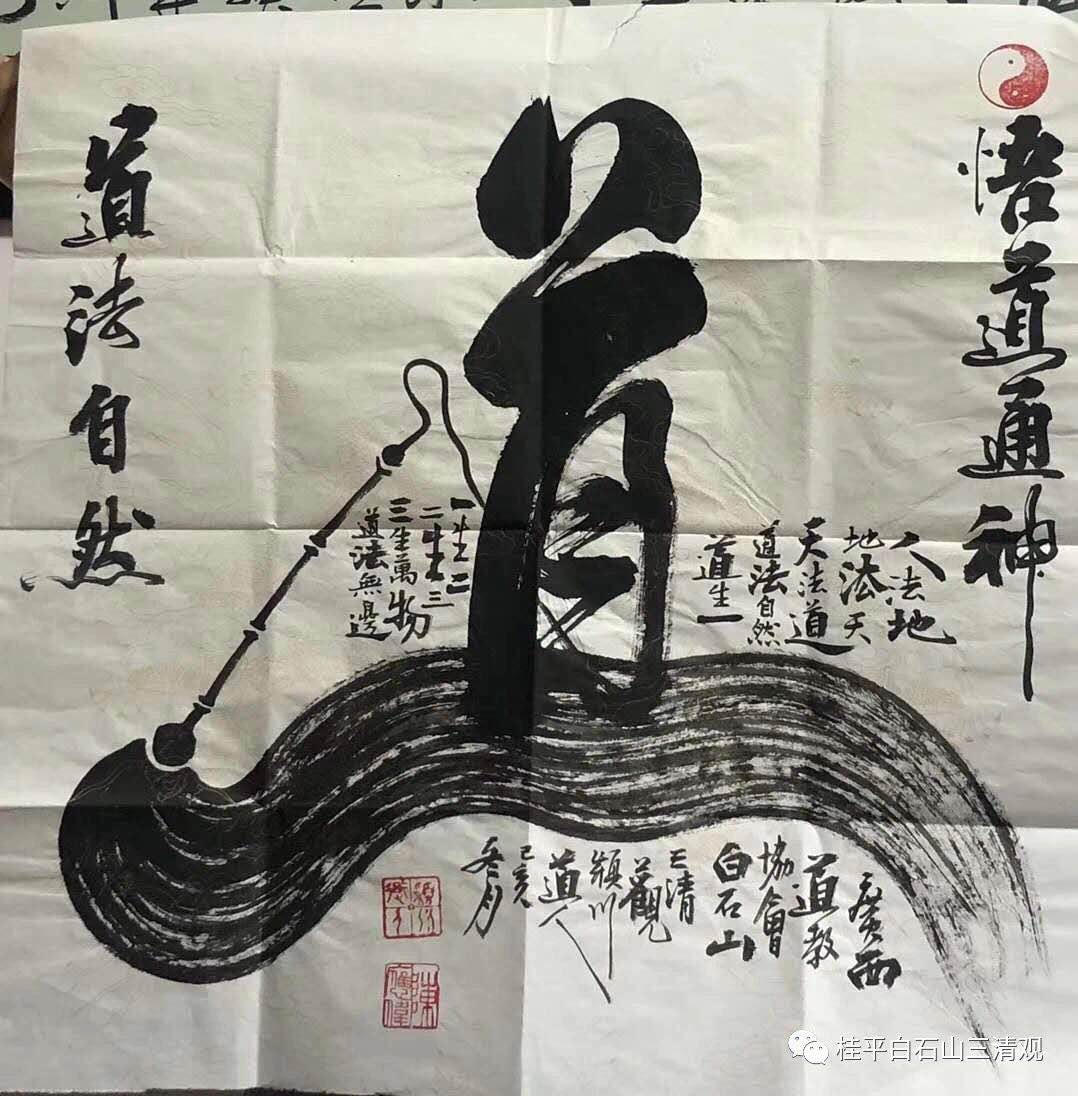 悟道通神
道
人法地
地法天
天法道
道法自然
道生一
一生二
二生三
三生萬物
道法無邊
道法自然
廣西
道教
協會
白石山
三清
觀
潁川
道人
己亥
冬月
桂平白石山三清观